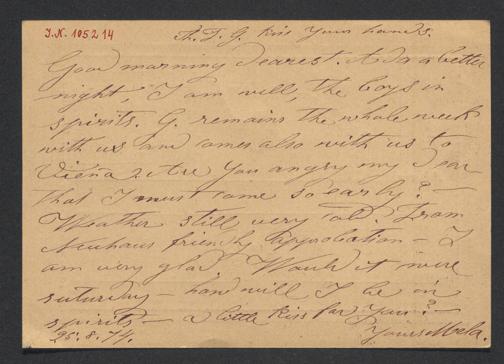 J.N. 105214
Th. F. G. kiss your hands.
Good morning dearest. Had a better
night, I am well, the boys in
spirits. G. remains the whole week
with us and comes also with us to
Viena. Are you angry my dear
that I must come so early? —
Weather still very cold. From
Neuhaus friendly approbation — I
am very glad. Would it were
saturday — how will I be in
spirits — a little kiss for you? —
Yours Mela.
26.8.77.